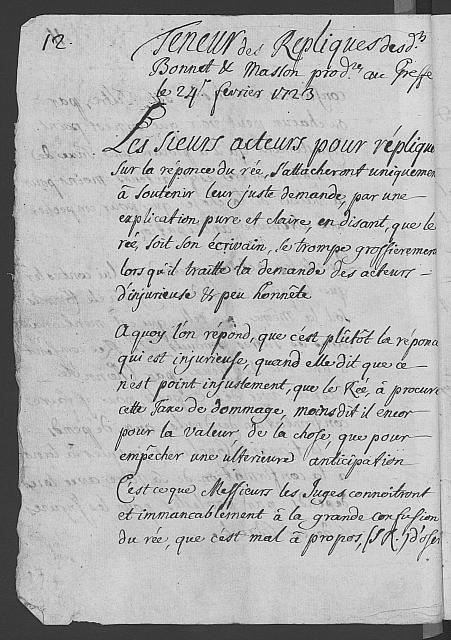 12.
Teneur des Repliques des d.rs
Bonnet & Masson prod.tes au Greffe
le 24.e fevrier 1723
Les sieurs acteurs pour réplique
sur la réponce du rée, s'attacheront uniquemen
à soutenir leur juste demande, par une
explication pure et claire, en disant, que le
rée, soit son écrivain, se trompe grossièremen
lors qu'il traitte la demande des acteurs
d'injurieuse & peu honnête
A quoy l'on répond, que c'est plûtôt la répon
qui est injurieuse, quand elle dit que ce
n'est point injustement, que le Rée, à procuré
cette Taxe de dommage, moins dit il encor
pour la valeur de la chose, que pour
empecher une ulterieure anticipation
C'est ce que Messieurs les Juges connoitront
et immancablement à la grande confusion
du rée, que c'est mal à propos, (S.R.) d'oser